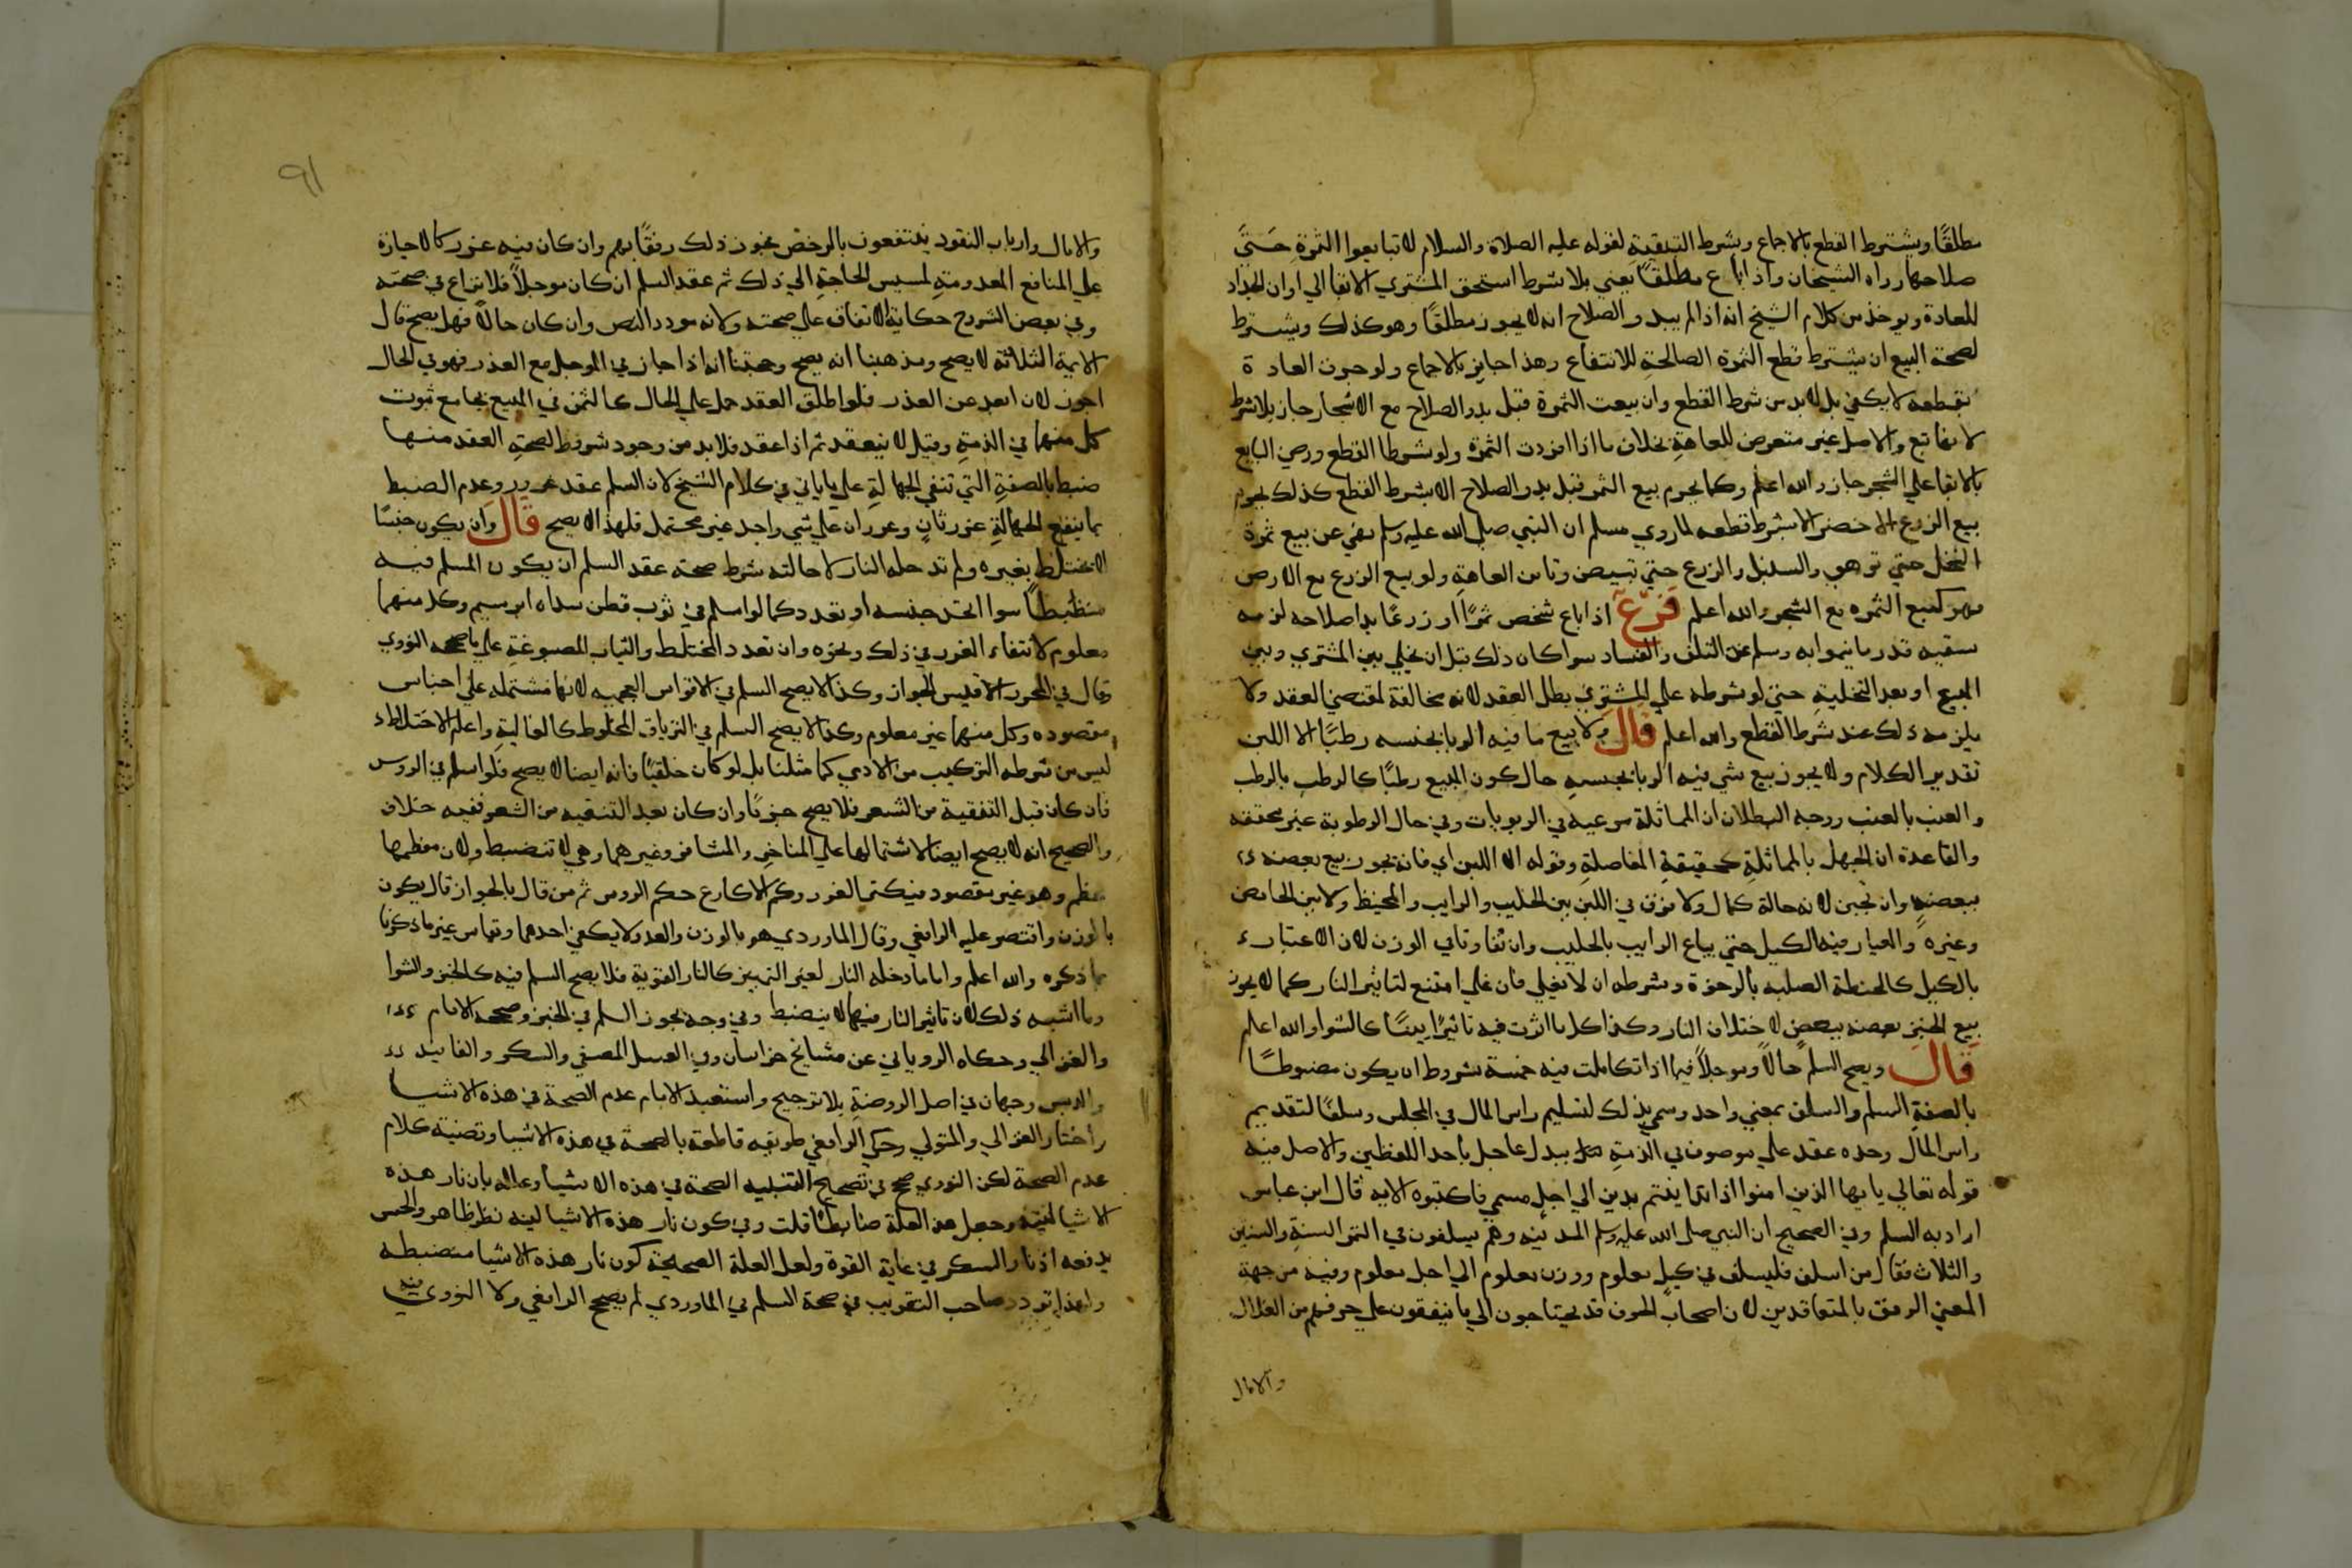 مطلقًا ويشترط القطع بالاجماع وبشرط التبقية لقوله عليه الصلاة والسلام لا تبايعوا الثمرة حَتىَّ
صلاحها رواه الشيخان واذا باع مطلقًا يعني بلا شرط استحق المشتري الابقا الي اوان الجداد
للعادة ويوخذ من كلام الشيخ انه اذا لم يبد و الصلاح انه لا يجوز مطلقًا وهو كذلك ويشترط
لصحة البيع ان يشترط قطع الثمرة الصالحة للانتفاع وهذا جايز بالاجماع ولو جرت العادة
بقطعه لا يكفي بل لا بد من شرط القطع وان بيعت الثمرة قبل بدو الصلاح مع الاشجار جاز بلا شرط
لانها تبع والاصل غير متعرض للعاهة بخلاف ما اذا افردت الثمرة ولو شرطا القطع ورضي البايع
بالابقا علي الشجر جاز والله اعلم وكما يحرم بيع الثمر قبل بدو الصلاح الا بشرط القطع كذلك يحرم
بيع الزرع الاخضر الا بشرط قطعه لما روي مسلم ان النبي صلي الله عليه وسلم نهي عن بيع ثمرة
النخل حتي تزهو والسنبل والزرع حتي تبيض وتامن العاهة ولو بيع الزرع مع الارض
فهو كبيع الثمره مع الشجر والله اعلم فرع اذا باع شخص ثمرًا او زرعًا بدا صلاحه لزمه
سقيه قدر ما ينموا به وسلم عن التلف والفساد سوا كان ذلك قبل ان يخلي بين المشتري وبين
المبيع او بعد التخلية حتي لو شرطه علي المشتري بطل العقد لانه مخالفة لمقتضي العقد ولا
يلزمه ذلك عند شرط القطع والله اعلم قال ولا بيع ما فيه الربا بجنسه رطبًا الا اللبن
تقدير الكلام ولا يجوز بيع شي فيه الربا بجنسه حال كون المبيع رطبًا كالرطب بالرطب
والعنب بالعنب ووجه البطلان ان المماثلة مرعيه في الربويات وفي حال الرطوبة غير محققه
والقاعدة ان الجهل بالمماثلة كحقيقة المفاضلة وقوله الا اللبن اي فانه يجوز بيع بعضه
ببعضه وان تجبن لانه حالة كمال ولا فرق في اللبن بين الحليب والرايب والمخيظ ولابن الحامض
وغيره والعيار فيه الكيل حتي يباع الرايب بالحليب وان تفاوتا في الوزن لان الاعتبار
بالكيل كالحنطة الصلبه بالرخوة وشرطه ان لا يغلي فان غلي امتنع لتاثير النار كما لا يجوز
بيع الخبز بعضه ببعض لاختلاف النار وكذا كل ما اثرت فيه تاثيرًا بينًا كالشوا والله اعلم
قال ويصح السلم حالًا وموجلاً فيما اذا تكاملت فيه خمسة شروط ان يكون مضبوطًا
بالصفة السلم والسلف بمعني واحد وسمي بذلك لتسليم راس المال في المجلس وسلفًا لتقديم
راس المال وحده عقد علي موصوف في الذمة ببدل عاجل باحد اللفظين والاصل فيه
قوله تعالي يايها الذين امنوا اذا تداينتم بدين الي اجل مسمي فاكتبوه الايه قال ابن عباس
اراد به السلم وفي الصحيح ان النبي صلى الله عليه وسلم المدينه وهم يسلفون في الثمر السنة والسنتين
والثلاث فقال من اسلف فليسلف في كيل معلوم ووزن معلوم الي اجل معلوم وفيه من جهة
المعني الرفق بالمتعاقدين لان اصحاب الحرف قد يحتاجون الي ما ينفقون علي حرفهم من الغلال
والامال
٩١
والامال وارباب النقود ينتفعون بالرخص فجوز ذلك رفقًا بهم وان كان فيه غرر كالاجارة
علي المنافع المعدومة لمسيس الحاجة الي ذلك ثم عقد السلم ان كان موجلاً فلا نزاع في صحته
وفي بعض الشروح حكاية الاتفاق علي صحته ولانه مورد النص وان كان حالاً فهل يصح قال
الايمة الثلاثة لا يصح ومذهبنا انه يصح وحجتنا انه اذا جاز في الموجل مع الغذر فهو في الحال
اجوز لانه ابعد عن الغذر فلو اطلق العقد حمل علي الحال كالثمن في المبيع بجامع ثبوت
كل منهما في الذمة وقيل لا ينعقد ثم اذا عقد فلا بد من وجود شروط لصحة العقد منها
ضبطه بالصفة التي تنفي الجهالة علي ما ياتي في كلام الشيخ لان السلم عقد غرر وعدم الضبط
بما ينفع الجهالة غرر ثان وغرران علي شي واحد غير محتمل فلهذا لا يصح قال وان يكون جنسًا
لا يختلط بغيره ولم تدخله النار لاحالته شرط صحة عقد السلم ان يكون المسلم فيه
منظبطًا سوا اتحد جنسه او تعدد كما لو اسلم في ثوب قطن سداه ابريسم وكل منهما
معلوم لانتفاء الغرر في ذلك ونحوه وان تعدد المختلط والثياب المصبوغة علي ما صححه النووي
وقال في المحرر الاقيس الجواز وكذا لا يصح السلم في الاقواس العجميه لانها مشتمله علي اجناس
مقصوده وكل منها غير معلوم وكذا لا يصح السلم في الترياق المخلوط كالغالية واعلم الاختلاط
ليس من شرطه التركيب من الادمي كما مثلنا بل لو كان خلقيًا فانه ايضا لا يصح فلو اسلم في الروس
فان كان قبل التنقية من الشعر فلا يصح جزمًا وان كان بعد التنقيه من الشعر ففيه خلاف
والصحيح انه لا يصح ايضا لاشتمالها علي المناخر والمشافر وغيرهما وهي لا تنضبط ولان معظمها
عظم وهو غير مقصود فيكثر الغرر وحكم الاكارع حكم الروس ثم من قال بالجواز قال يكون
بالوزن واقتصر عليه الرافعي وقال الماوردي هو بالوزن والعد ولا يكفي احدهما وقياس غير ما ذكرنا
بما ذكره والله اعلم واما ما دخله النار لغير التمييز كالنار القوية فلا يصح السلم فيه كالخبز والشوا
وما اشبه ذلك لان تاثير النار فيها لا ينضبط وفي وجه يجوز السلم في الخبز وصححه الامام
والغزالي وحكاه الروياني عن مشايخ خراسان وفي العسل المصفي والسكر والفانيد
والدبس وجهان في اصل الروضة بلا ترجيح واستبعد الامام عدم الصحة في هذه الاشيا
واختار الغزالي والمتولي وحكي الرافعي طريقه قاطعة بالصحة في هذه الاشيا وقضية كلام
عدم الصحة لكن النووي صحح في تصحيح التنبيه الصحة في هذه الاشيا وعلله بان نار هذه
الاشيا لينة وجعل هذه العلة ضابطًا قلت وفي كون نار هذه الاشيا لينه نظر ظاهر والحس
يدفعه اذ نار السكر في غاية القوة ولعل العلة الصحيحة كون نار هذه الاشيا منضبطه
ولهذا تردد صاحب التقريب في صحة السلم في الماوردي لم يصحح الرافعي ولا النووي فيه